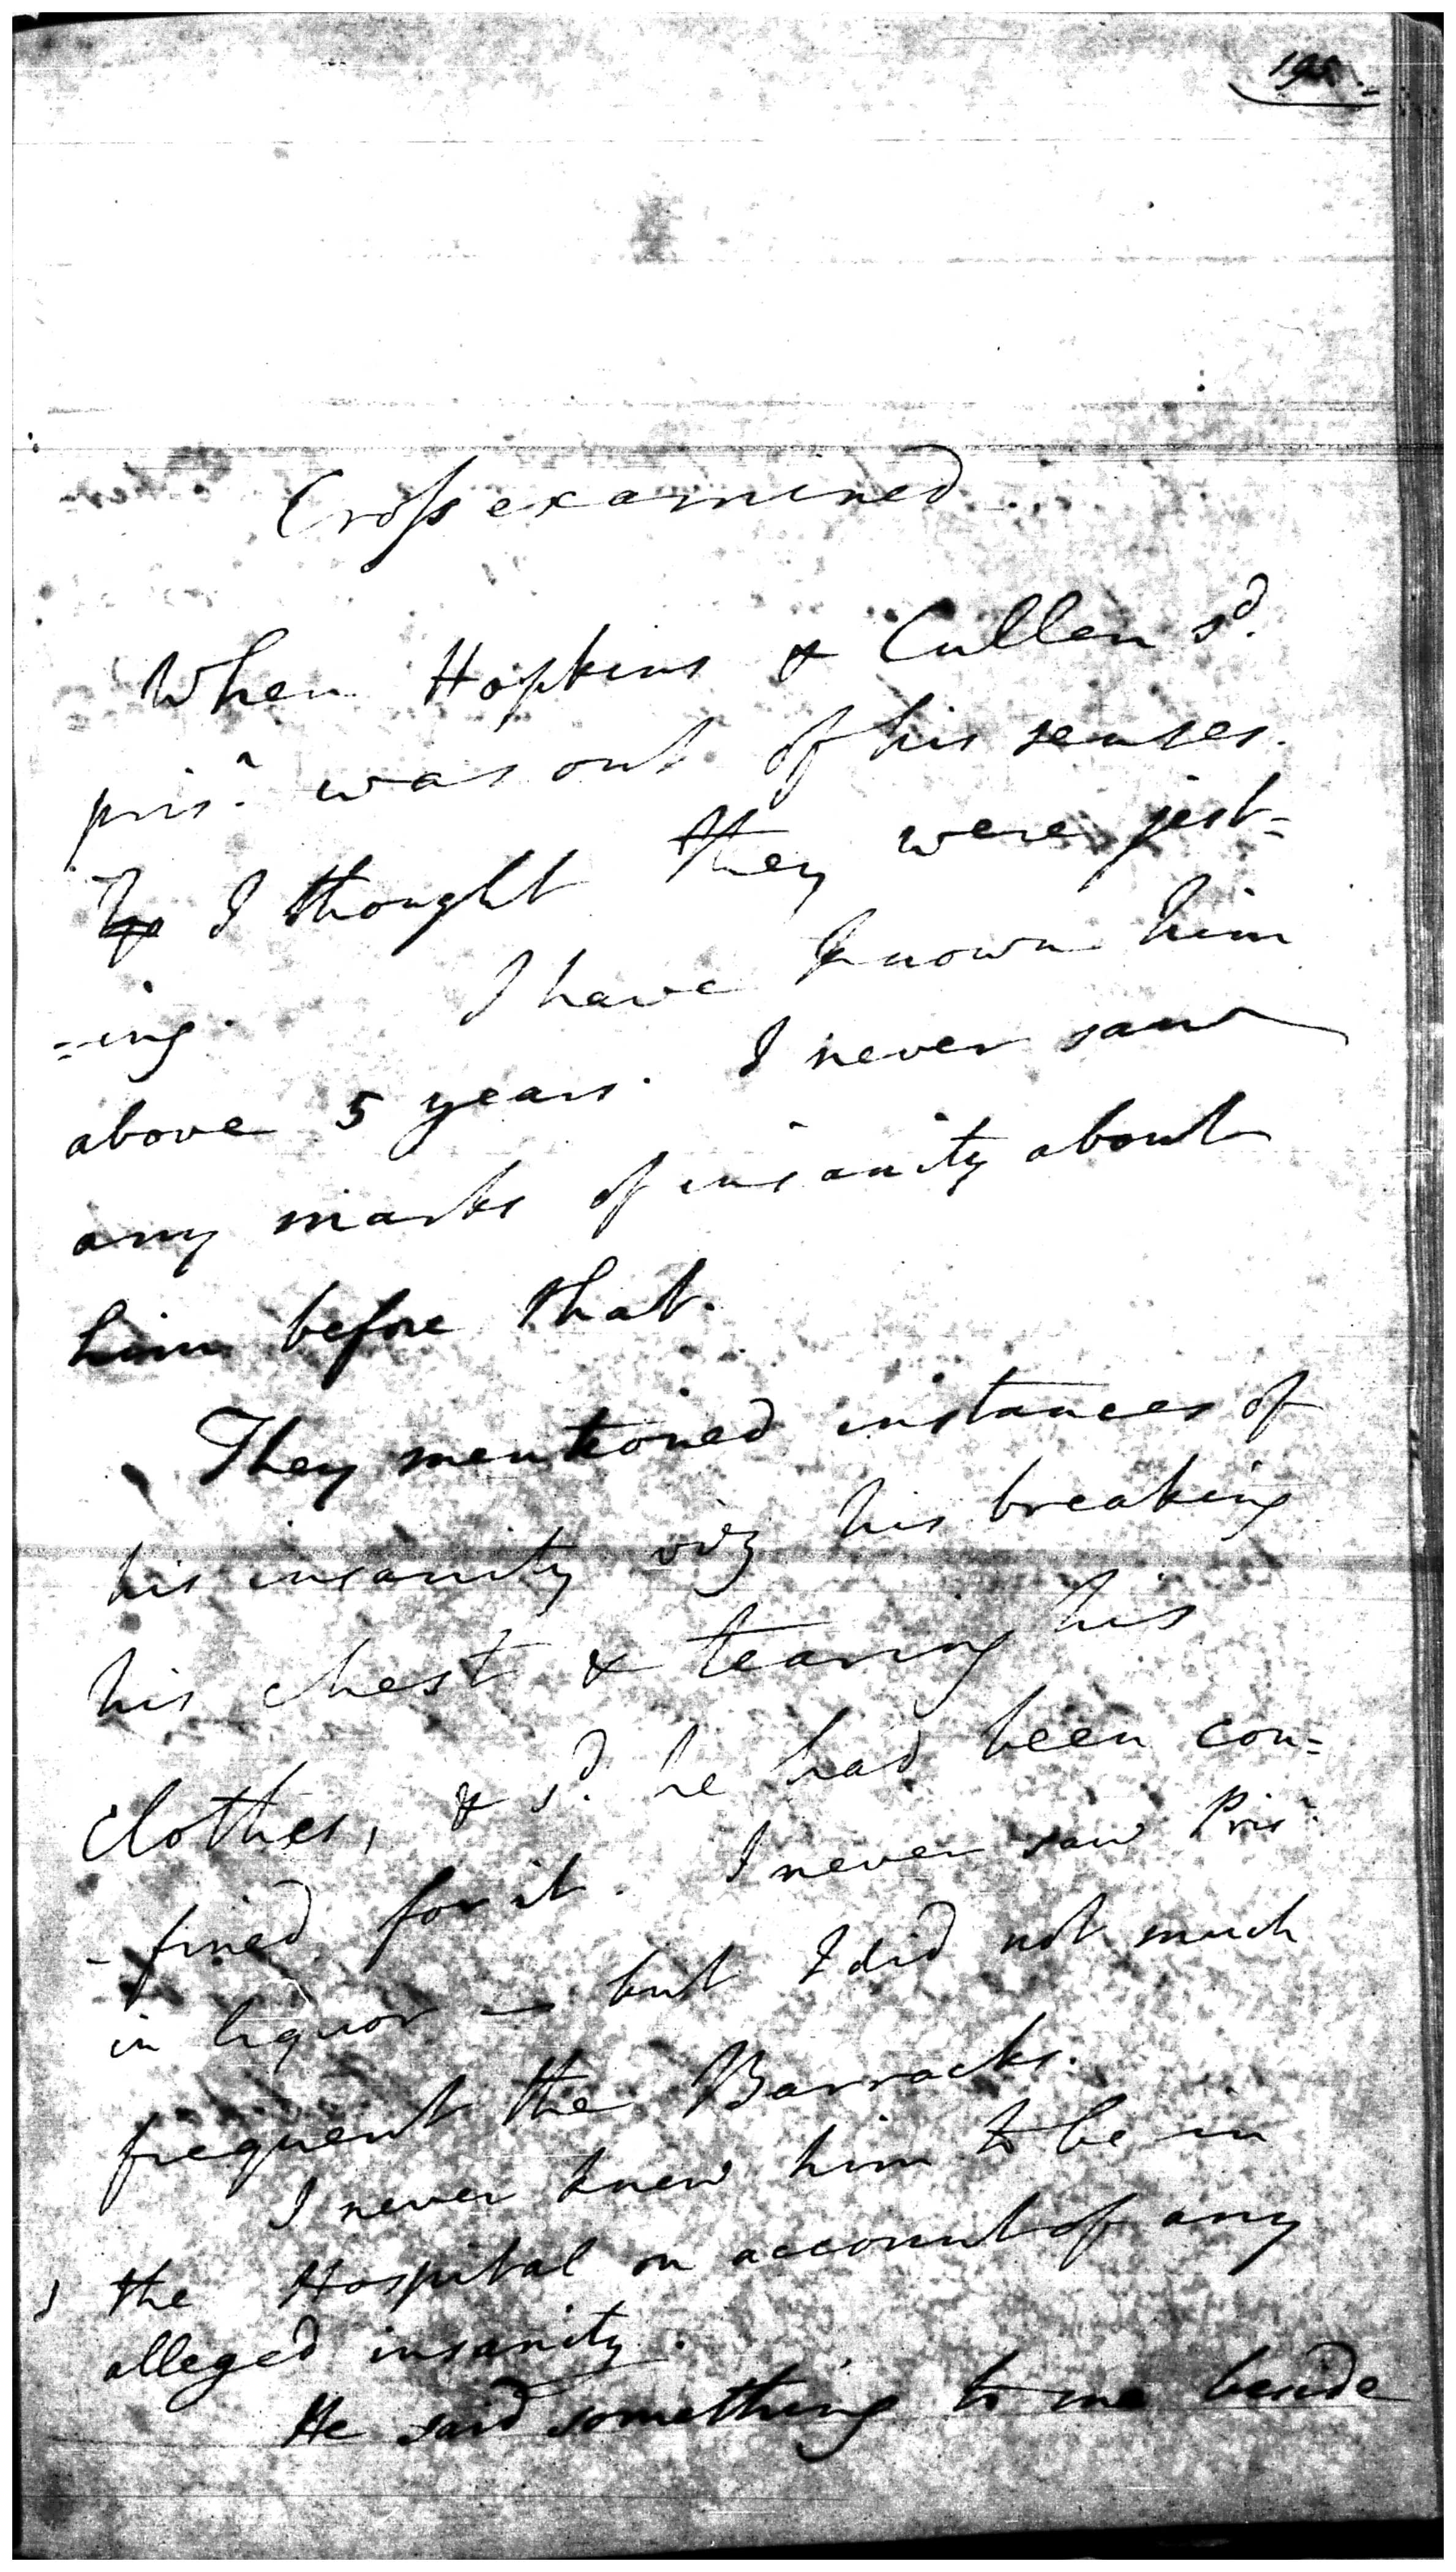 195.
Cross examined
When Hopkins & Cullen sd.
prisr. was out of his senses.
I thought they were jest=
=ing. I have known him
above 5 years. I never saw
any marks of insanity about
him before that.
They mentioned instances of
his insanity viz his breaking
his chest & tearing his
clothes, & sd. he had been con=
-fined for it. I never saw Prisr.
in liquor — but I did not much
frequent the Barracks.
I never knew him to be in
the Hospital on account of any
alleged insanity.
He said something to me beside